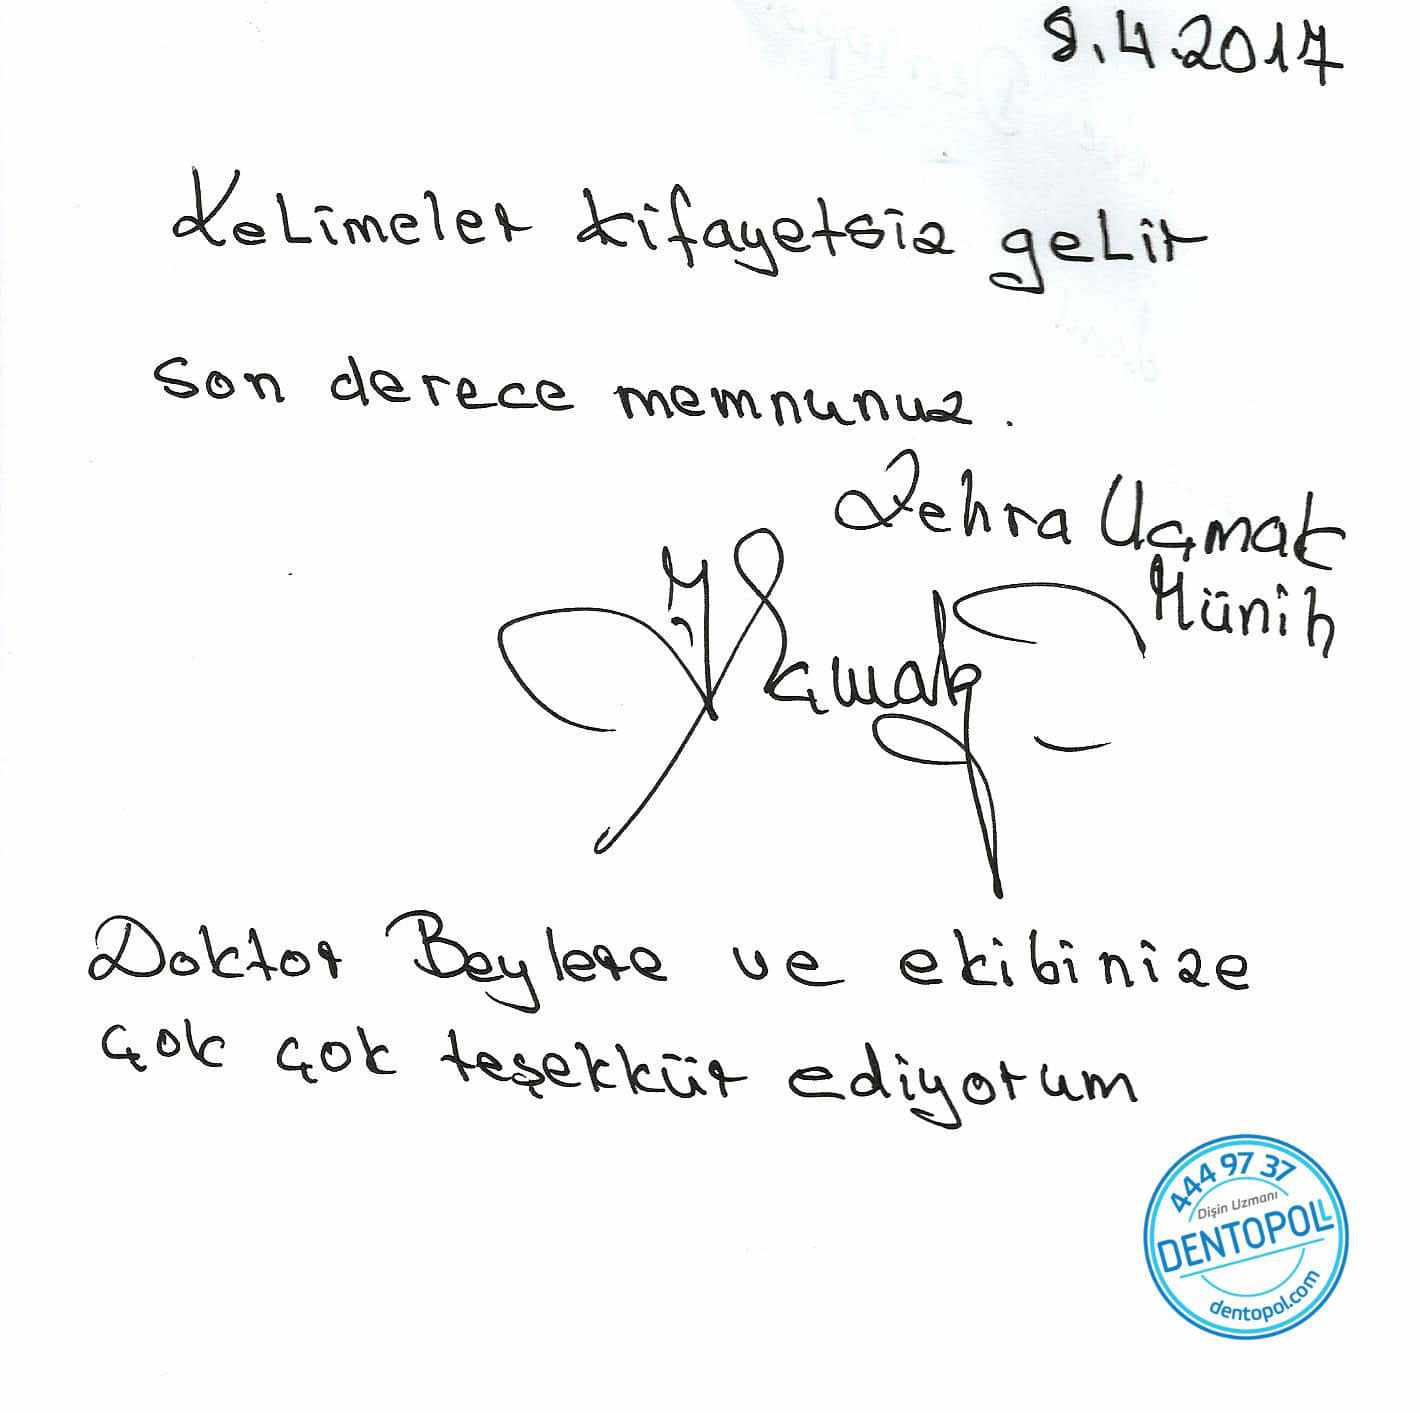 8.4.2017
Kelimeler kifayetsiz gelir
son derece memnunuz.
Zehra Uçmak
Münih
Doktor Beylere ve ekibinize
çok çok teşekkür ediyorum
444 97 37
Dişin Uzmanı
DENTOPOL
dentopol.com